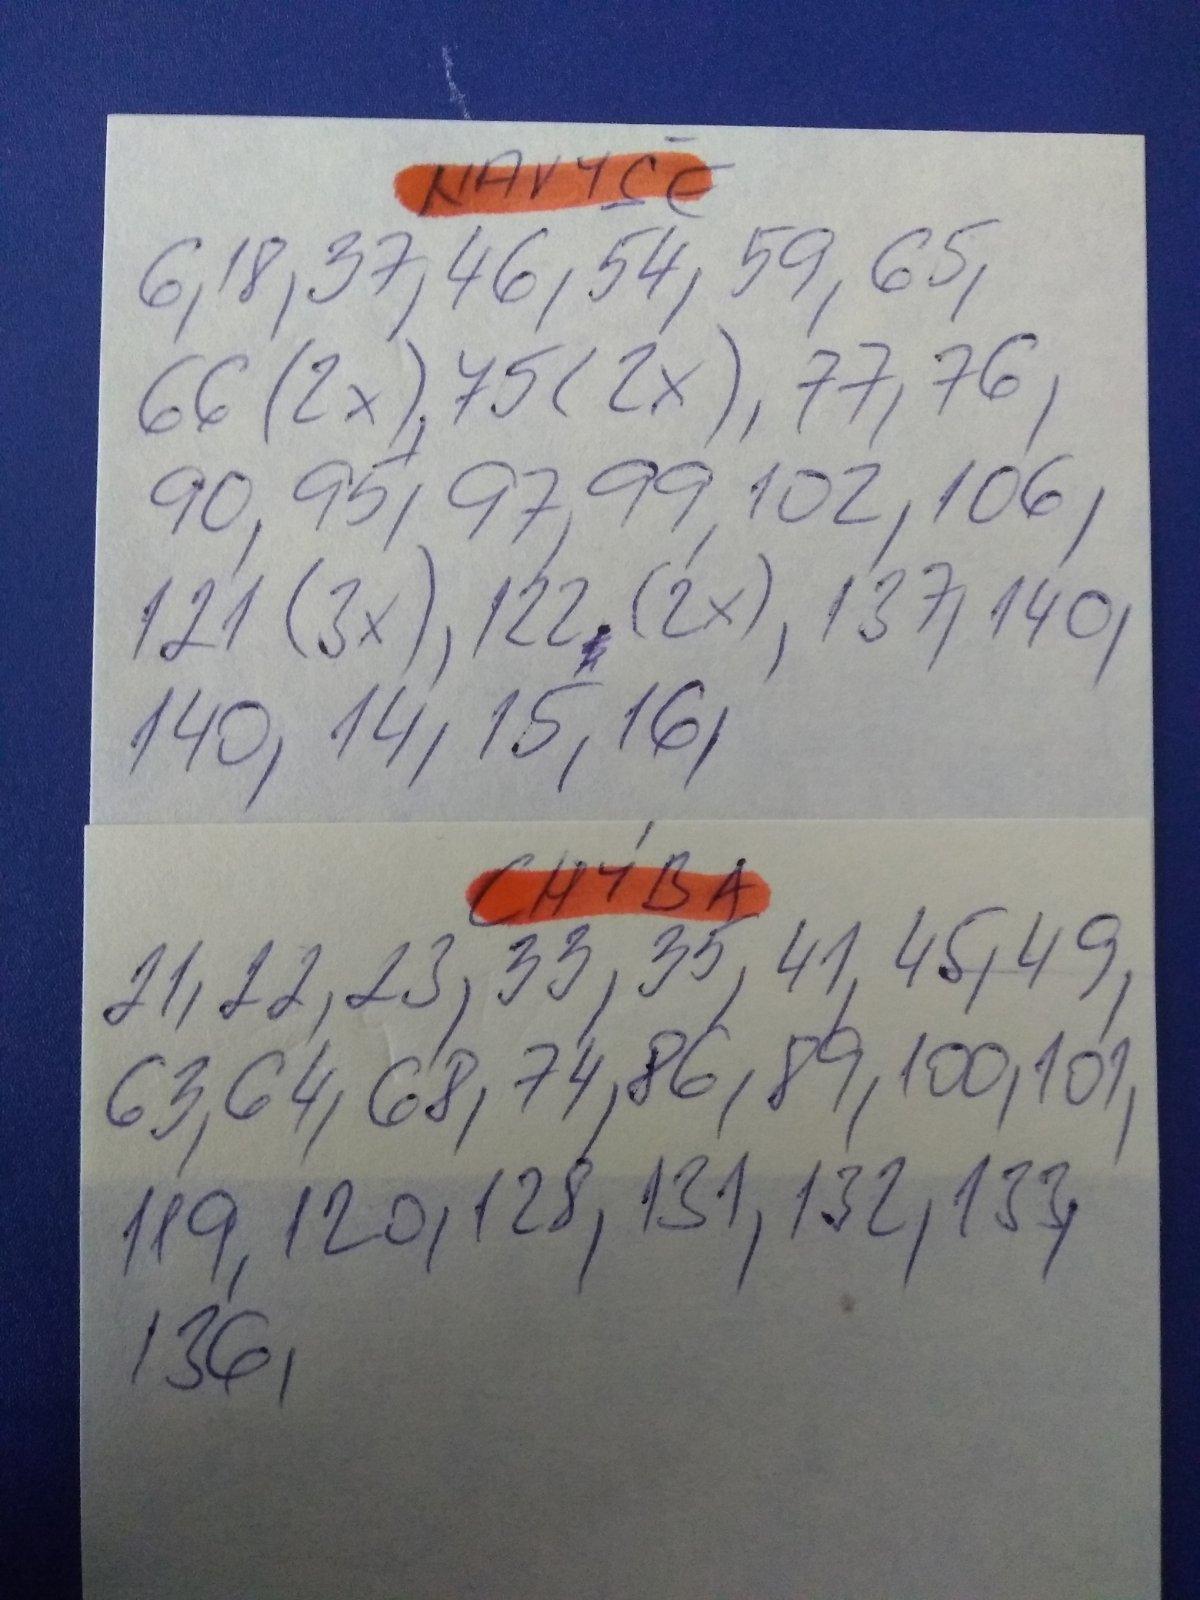 NAVYŠE
6, 18, 37, 46, 54, 59, 65,
66 (2x), 75 (2x), 77, 76,
90, 95, 97, 99, 102, 106,
121 (3x), 122, (2x), 137, 140,
140, 14, 15, 16,
CHÝBA
21, 22, 23, 33, 35, 41, 45, 49,
63, 64, 68, 74, 86, 89, 100, 101,
119, 120, 128, 131, 132, 133,
136,